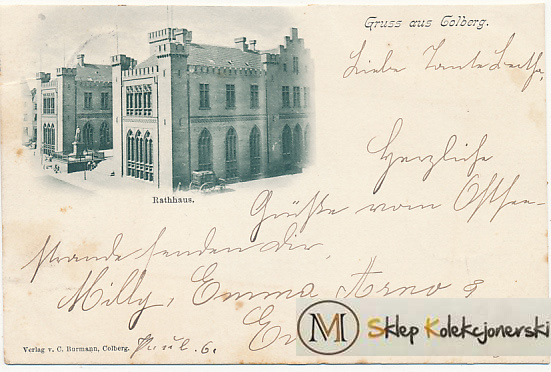 Gruss aus Colberg.
Liebe Tante Bertha,
Rathhaus.
Herzliche
Grüße vom Ostsee-
strande senden Dir,
Milly, Emma Arno &
Verlag v. C. Burmann, Colberg.
M Sklep Kolekcjonerski